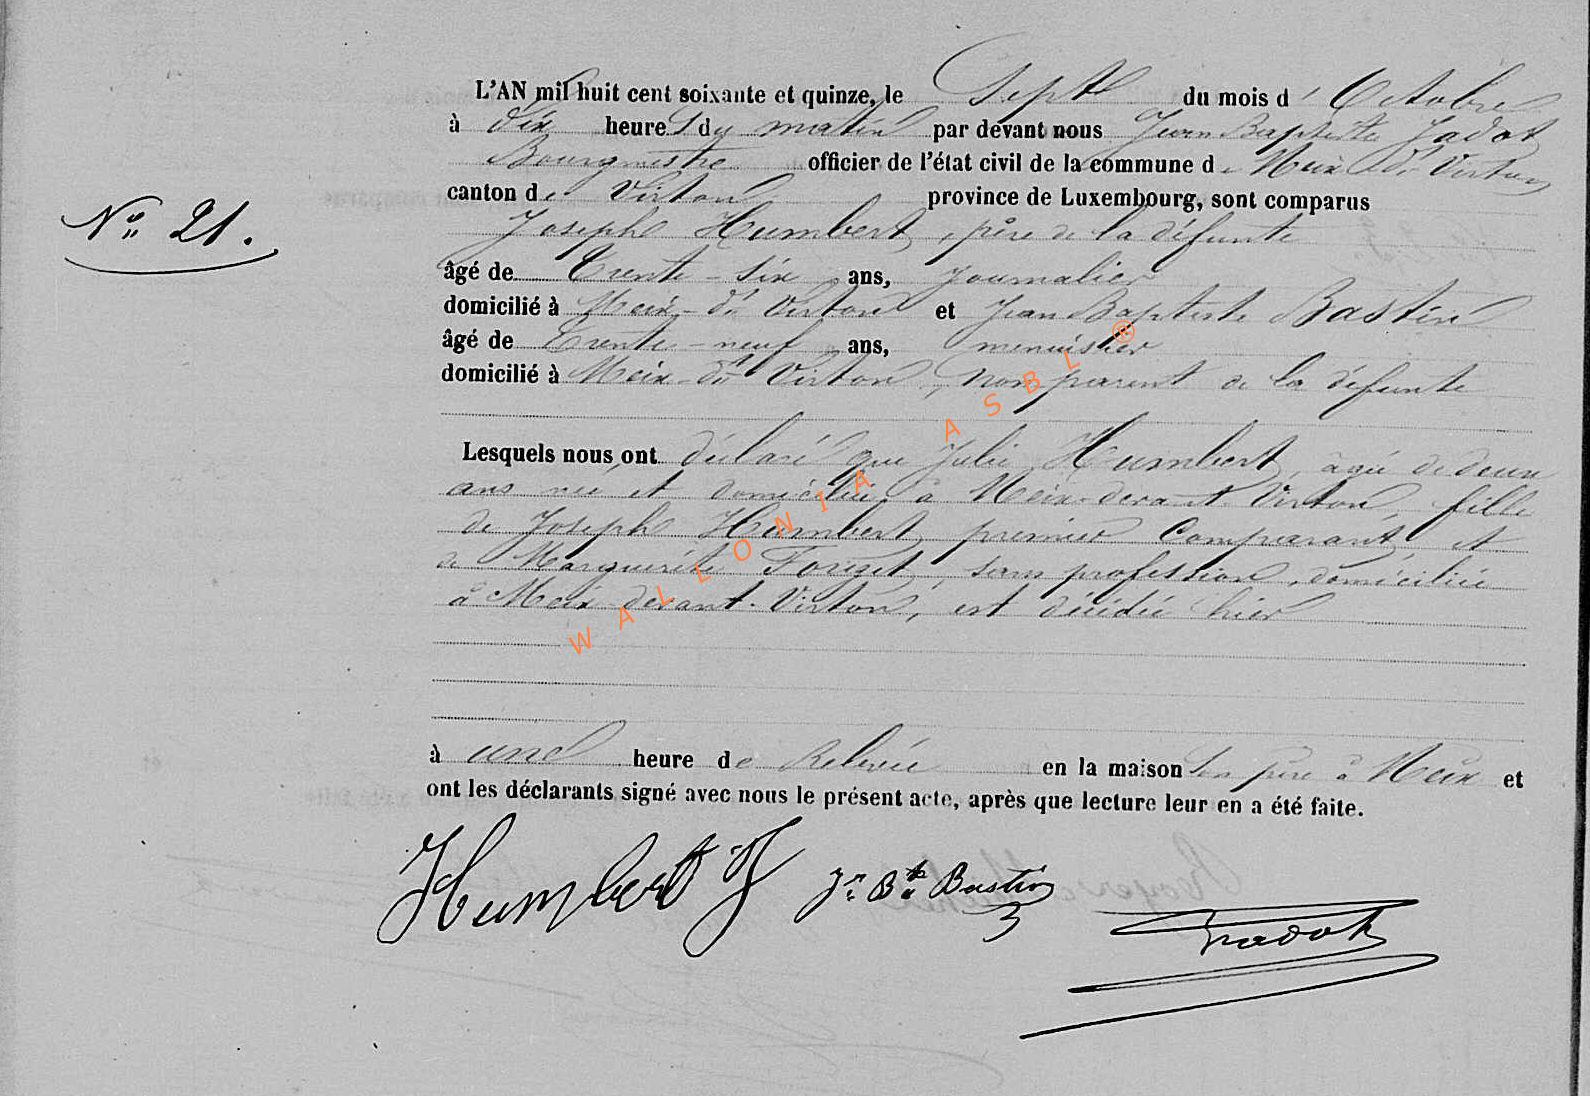 L'AN mil huit cent soixante et quinze, le Sept du mois d' Octobre
à dix heures du matin par devant nous Jean Baptiste Jadot
Bourgmestre officier de l'état civil de la commune de Meix dt Virton
canton de Virton province de Luxembourg, sont comparus
No 21.
Joseph Humbert, père de la défunte
âgé de Trente-six ans, journalier
domicilié à Meix-dt Virton et Jean Baptiste Bastin
âgé de Trente-neuf ans, menuisier
domicilié à Meix-dt Virton, non parent de la défunte
Lesquels nous ont déclaré que Julie Humbert, agée de deux
ans née et domiciliée à Meix-devant-Virton, fille
de Joseph Humbert, premier Comparant, et
de Marguerite Forget, sans profession, domiciliée
à Meix devant-Virton, est décédée hier
à une heure de Relevée en la maison son père à Meix et
ont les déclarants signé avec nous le présent acte, après que lecture leur en a été faite.
Humbert J Jn Bte Bastin Jadot
WALLONIA ASBL ®